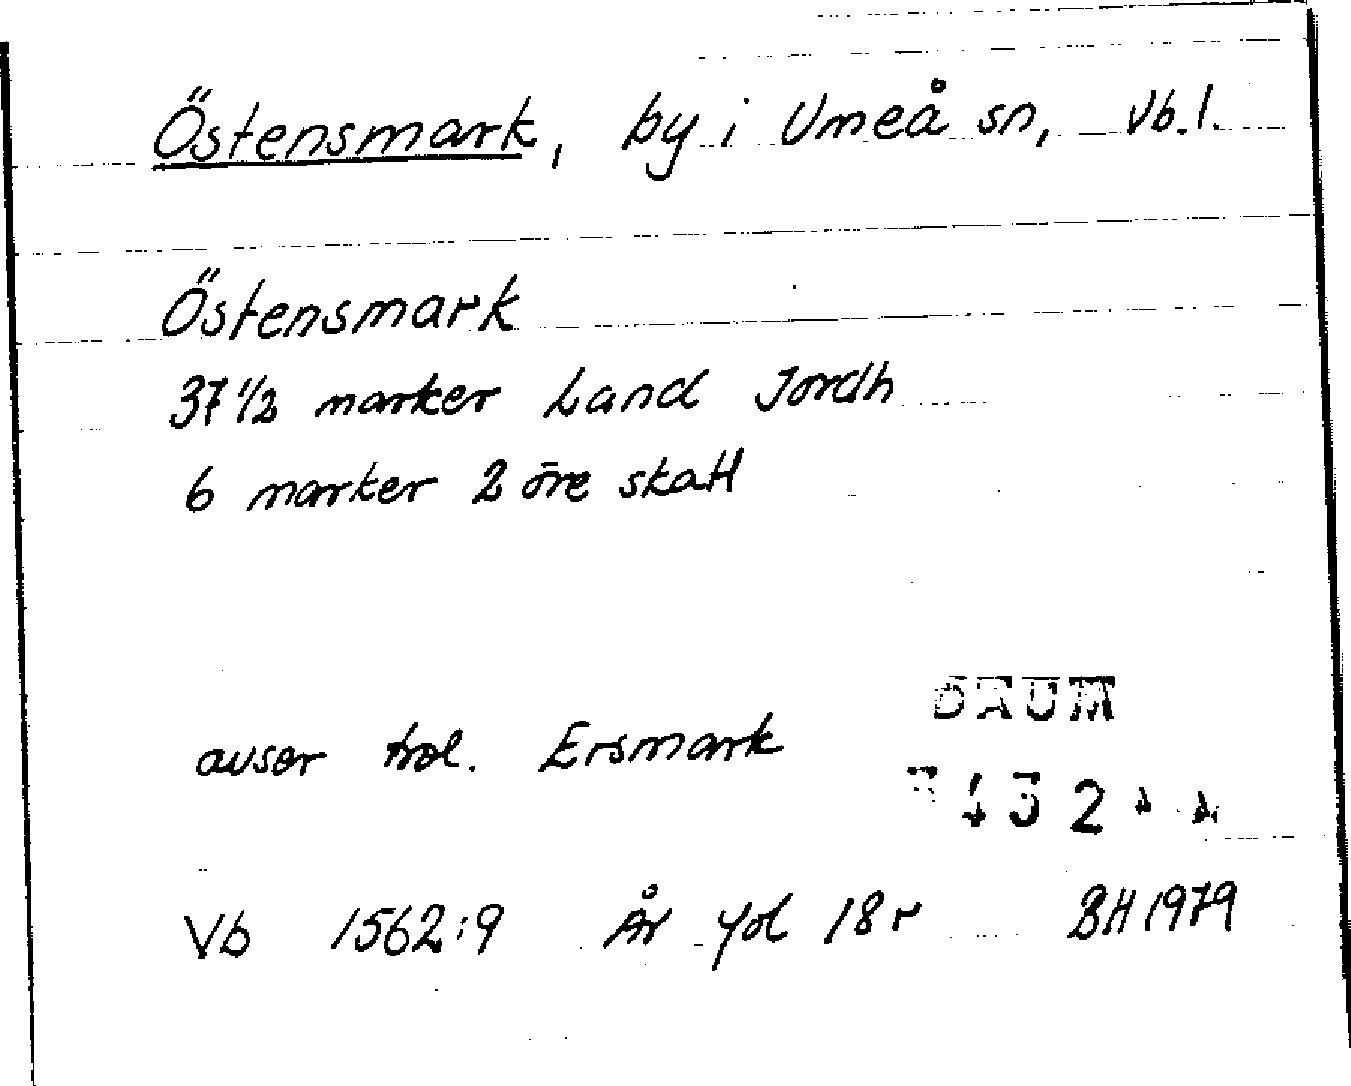 Östensmark, by i Umeå sn, Vb.l.
Östensmark
37 1/2 marker Land Jordh
6 marker 2 öre skatt
avser trol. Ersmark
DAUM
432
Vb 1562:9 År vol 18 r BH 1979